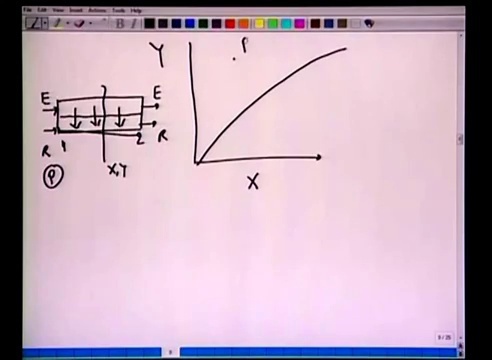 File Edit View Insert Actions Tools Help
B
Y
P
E
E
R
1
2
R
X,Y
P
X
9/25
9